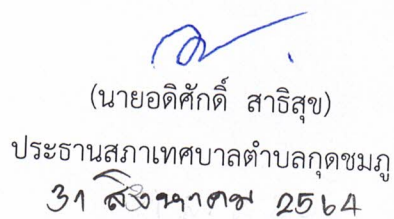 (นายอดิศักดิ์ สาธิสุข)
ประธานสภาเทศบาลตำบลกุดชมภู
31 สิงหาคม 2564